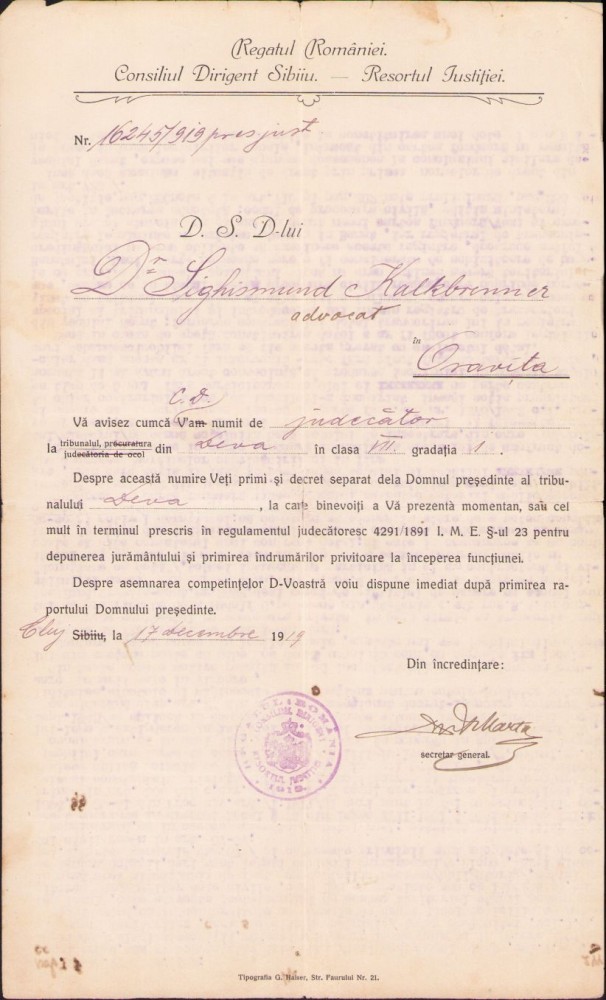 Regatul României.
Consiliul Dirigent Sibiiu. — Resortul Justiției.
Nr. 16245/919 pres just
D. S. D-lui
Dr Sighismund Kalkbrenner
advocat
în
Oravița
C. D.
Vă avisez cumcă V'am numit de judecător
la tribunalul, procuratura din Deva în clasa VII. gradația 1.
judecătoria de ocol
Despre această numire Veți primi și decret separat dela Domnul președinte al tribu-
nalului Deva, la care binevoiți a Vă prezentà momentan, sau cel
mult în terminul prescris în regulamentul judecătoresc 4291/1891 I. M. E. §-ul 23 pentru
depunerea jurământului și primirea îndrumărilor privitoare la începerea funcțiunei.
Despre asemnarea competințelor D-Voastră voiu dispune imediat după primirea ra-
portului Domnului președinte.
Cluj Sibiiu, la 17 decembre 1919
Din încredințare:
secretar general.
REGATUL ROMÂNIA
CONSILIUL DIRIGENT
RESORTUL JUSTIȚIEI
1919.
Tipografia G. Haiser, Str. Faurului Nr. 21.